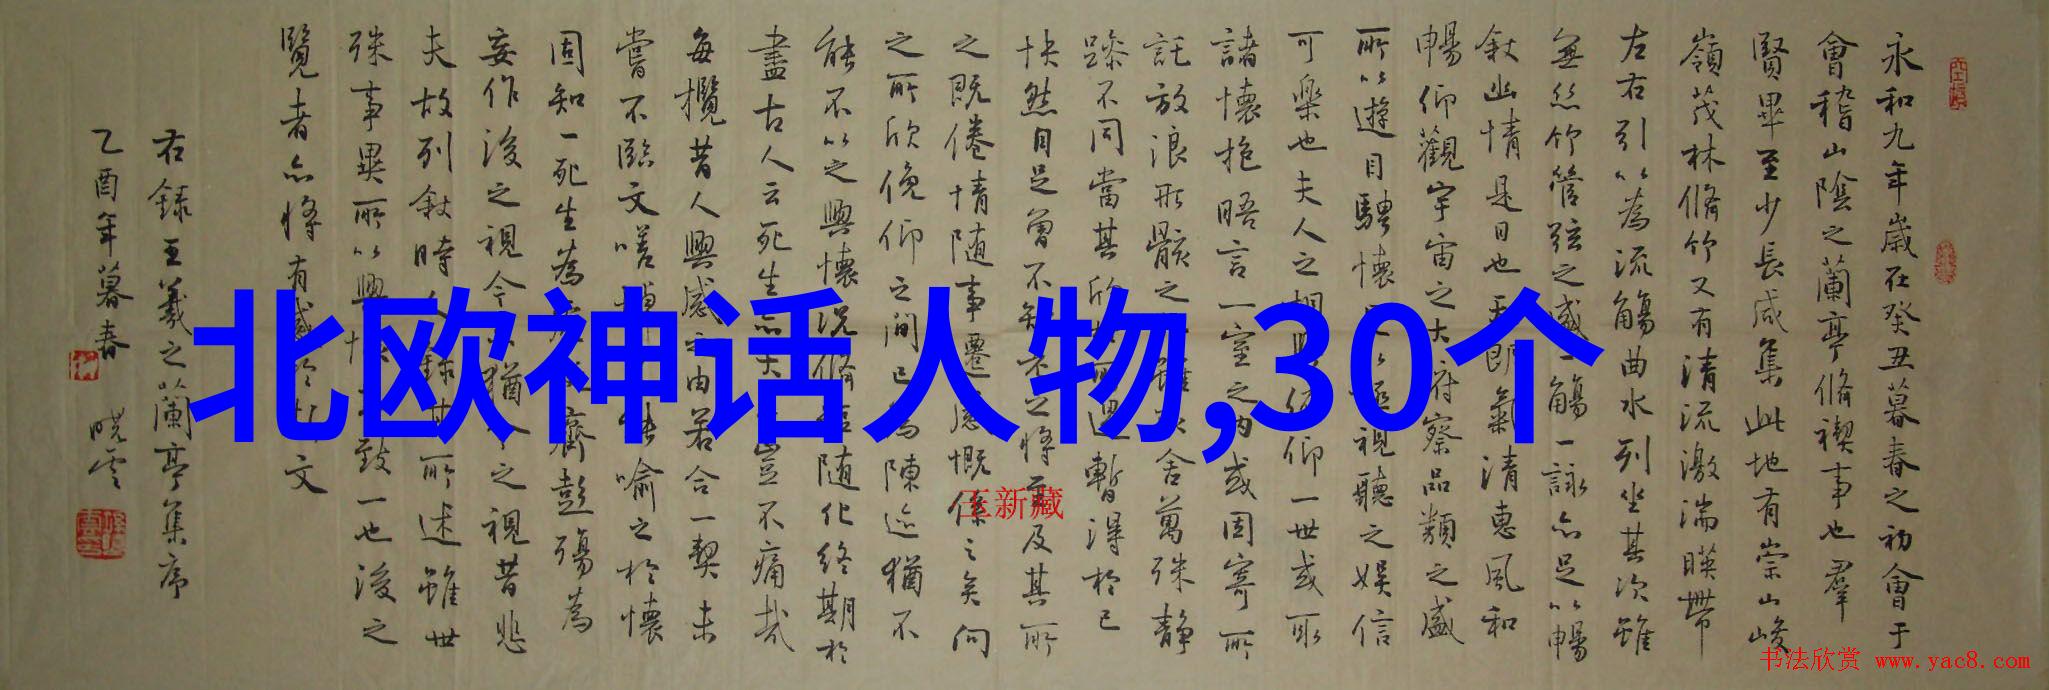 北欧神话人物,30个
永和九年歲在癸丑暮春之初會于
會稽山陰之蘭亭脩禊事也群
賢畢至少長咸集此地有崇山峻
嶺茂林脩竹又有清流激湍暎帶
左右引以為流觴曲水列坐其次雖
無絲竹管弦之盛一觴一詠亦足以暢
敘幽情是日也天朗氣清惠風和
暢仰觀宇宙之大府察品類之盛
所以遊目騁懷足以極視聽之娛信
可樂也夫人之相與俯仰一世或取
諸懷抱晤言一室之內或因寄所
託放浪形骸之雖取舍萬殊靜
躁不同當其欣所遇暫得於己
快然自足曾不知老之將至及其所
之既倦情随事遷感慨係之矣向
之所欣俛仰之間已為陳迹猶不
能不以之興懷況脩短随化終期於
盡古人云死生亦大豈不痛哉
每攬昔人興感之由若合一契未
嘗不臨文嗟悼能喻之於懷
固知一死生為齊彭殤為
妄作後之視今猶今之視昔悲
夫故列敘時人錄其所述雖世
殊事異所以興懷致一也後之
覽者亦將有感於文
右錄王羲之蘭亭集序
乙酉年暮春 曉雲
王新藏
书法欣赏 www.yac8.com